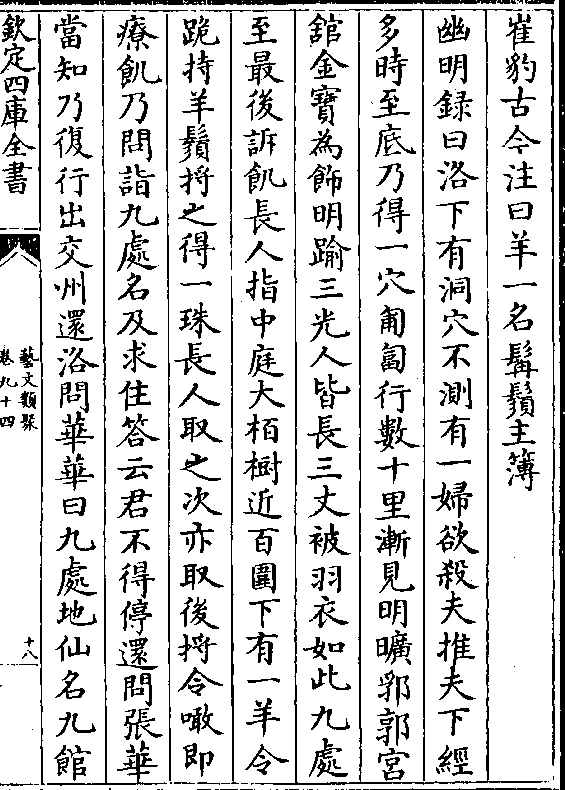 崔豹古今注曰羊一名髯鬚主簿
幽明録曰洛下有洞穴不測有一婦欲殺夫推夫下經
多時至底乃得一穴匍匐行數十里漸見明曠郛郭宮
舘金寶為飾明踰三光人皆長三丈被羽衣如此九處
至最後訴飢長人指中庭大栢樹近百圍下有一羊令
跪持羊鬚捋之得一珠長人取之次亦取後捋令噉即
療飢乃問詣九處名及求住答云君不得停還問張華
當知乃復行出交州還洛問華華曰九處地仙名九館
欽定四庫全書
藝文類聚
卷九十四
十八